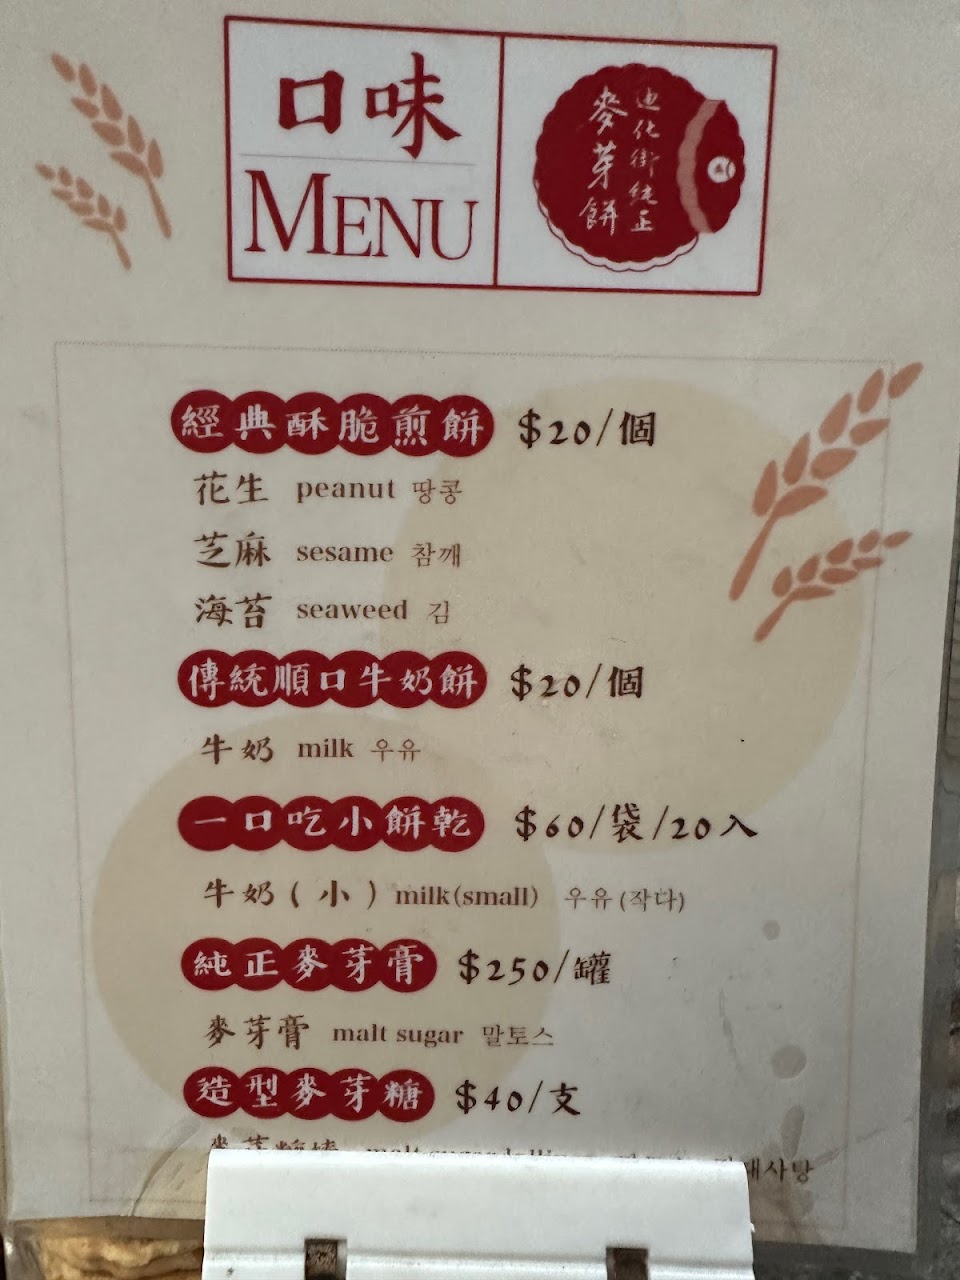 口味
MENU
迪化街純正
麥芽餅
經典酥脆煎餅 $20/個
花生 peanut 땅콩
芝麻 sesame 참깨
海苔 seaweed 김
傳統順口牛奶餅 $20/個
牛奶 milk 우유
一口吃小餅乾 $60/袋/20入
牛奶(小) milk(small) 우유(작다)
純正麥芽膏 $250/罐
麥芽膏 malt sugar 말토스
造型麥芽糖 $40/支
麥芽糖 malt sugar 사탕